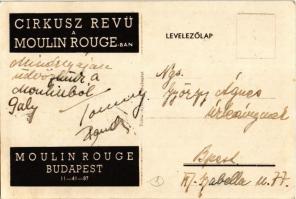 CIRKUSZ REVÜ
A
MOULIN ROUGE-BAN
üdvözlünk a
Moulinból
Gaby
Tommy
MOULIN ROUGE
BUDAPEST
11—41—97
LEVELEZŐLAP
Ngs.
György Ágnes
úrleánynak
Bpest
Izabella u. 77.